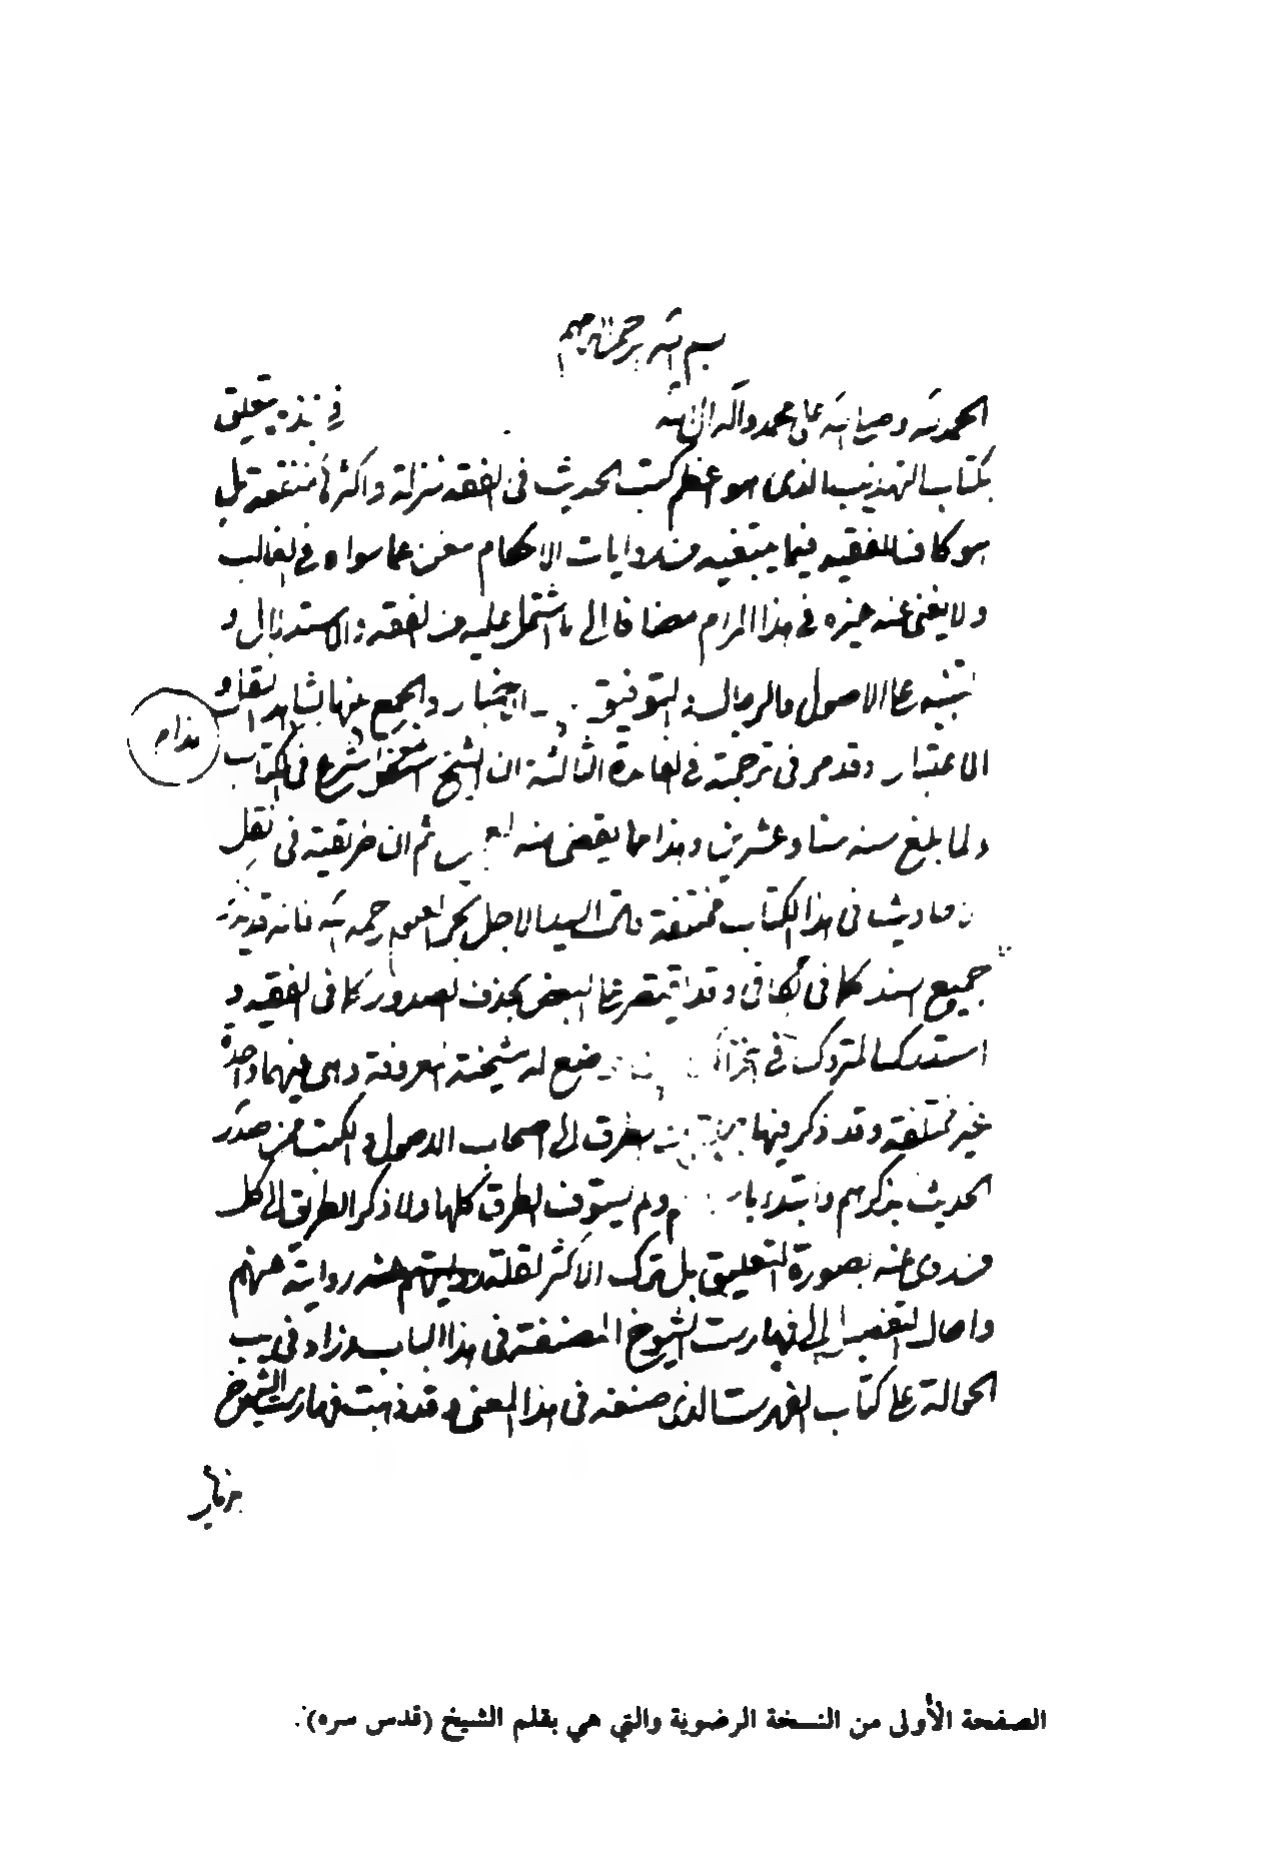 بسم الله الرحمن الرحيم
الحمد لله وصلى الله على محمد وآله في نبذة يتعلق
بكتاب التهذيب الذي هو اعظم كتب الحديث في الفقه منزلة واكثرها منفعة بل
هو كاف للفقيه فيما يبتغيه من روايات الاحكام مغن عما سواه في الغالب
ولا يغنى عنه غيره في هذا المرام مضافا الى ما اشتمل عليه من الفقه والاستدلال و
التنبيه على الاصول والرجال والتوفيق الاخبار والجمع بينها بشاهد النقل و
الاعتبار وقد مر في ترجمته في الفائدة الثالثة ان الشيخ شرع في الكتاب
هذا م
ولما بلغ سنه ستا وعشرين وهذا مما يقضى منه ثم ان طريقته في نقل
احاديث في هذا الكتاب مختلفة قال السيد الاجل بحر العلوم رحمه الله فانه قد يذكر
جميع السند كما في الكافي وقد يقتصر على البعض بحذف الصدور كما في الفقيه و
استدرك المتروك في وضع له مشيخة معروفة وهى فيهما واحدة
غير مختلفة وقد ذكر فيها الطرق الى اصحاب الاصول والكتب ممن صدر
الحديث بذكرهم وابتدء ولم يستوف الطرق كلها ولا ذكر الطريق الى كل
من روى عنه بصورة التعليق بل ترك الاكثر لقلة روايته عنهم
واحال التفصيل الى فهارست الشيوخ المصنفة في هذا الباب وزاد في يب
الحوالة على كتاب الفهرست الذي صنفه في هذا المعنى وقد ذهبت فهارست الشيوخ
الصفحة الأولى من النسخة الرضوية والتي هي بقلم الشيخ (قدس سره).